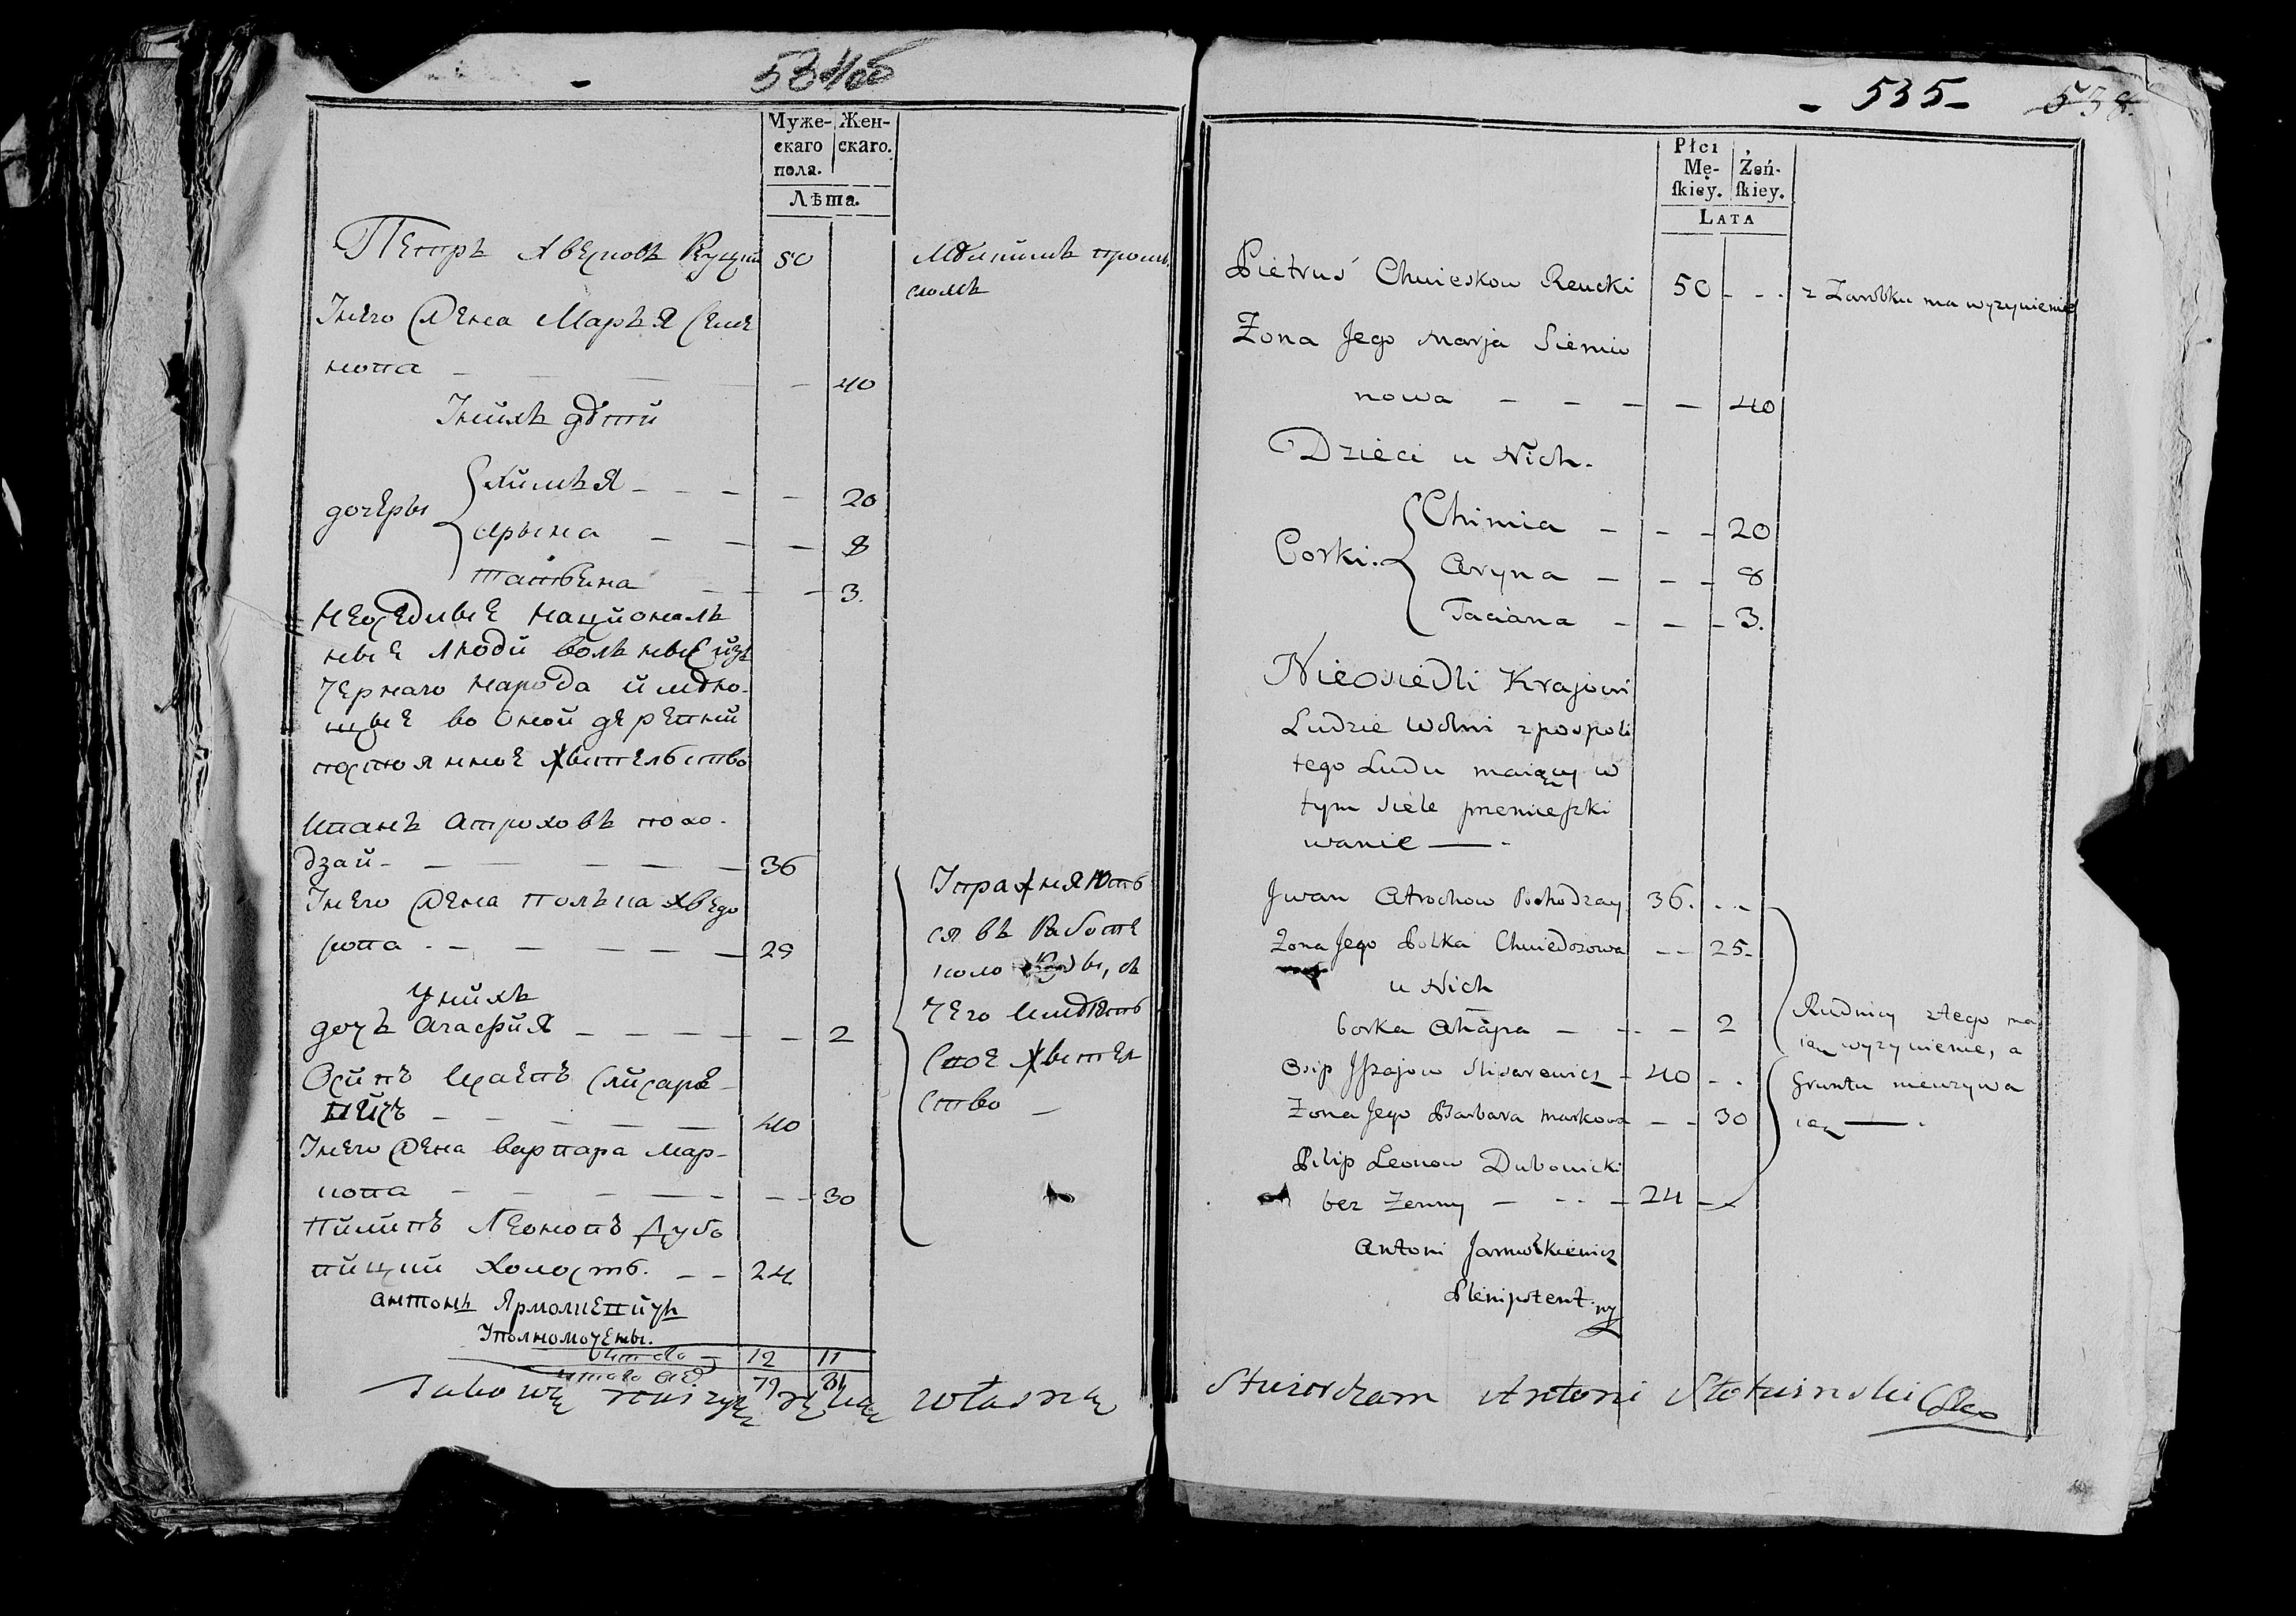 534об
Муже-
скаго
пола.
Жен-
скаго.
Лѣта.
Петръ 50
Унего жена Марья Семе
нова — — — — 40
Унихъ дѣти
дочеры
Химья — — — — 20
Арына — — — 8
Татьяна — — — 3.
Неоседлые националь
ные люди вольные изъ
чернаго народа имѣю-
щые во оной деревни
постоянное жытельство
Иванъ Атроховъ похо-
дзай — — — — — 36
Унего жена Полька Хведо
рова — — — — — 25
Унихъ
дочъ Агафия — — — — — 2
Осипъ Слисаре-
вичъ — — — — — 40
Унего жена Варвара Мар-
кова — — — — — 30
Пилипъ Леоновъ Дубо
вицкий холость. — — 24
Антонъ Ярмолкевичъ
Уполномочены.
итого — 12 11
Упражняють
ся въ работе
коло руды, съ
чего имѣють
свое жытел
ство —
własną
- 535 - 538.
Płci
Mę-
ſkiey.
Żeń-
ſkiey.
LATA
Pietruś Chwieskow Reucki 50 - - . z Zarobku ma wyzywienie
Zona Jego Marja Siemio
nowa — — — — 40
Dzieci u Nich.
Corki.
Chimia — — — 20
Aryna — — — 8
Taciana — — — 3.
Nieosiedli Krajowi
Ludzie Wolni z pospoli
tego Ludu maiący w
tym siele przemieſzki
wanie — .
Jwan Atrochow Pochodzay 36. . . -
Zona Jego Polka Chwiedorowa - - 25 -
u Nich
Corka Ahapa — - - — 2
Osip Slisarewicz - 40 - .
Zona Jego Barbara Markowa — - 30
Pilip Leonow Dubowicki
bez Zenny — - - — 24 —
Rudnicy z tego ma
ią wyzywienie, a
Gruntu nieuzywa
ią — .
Antoni Jarmołkiewicz
Plenipotent
Stwierdzam Antoni